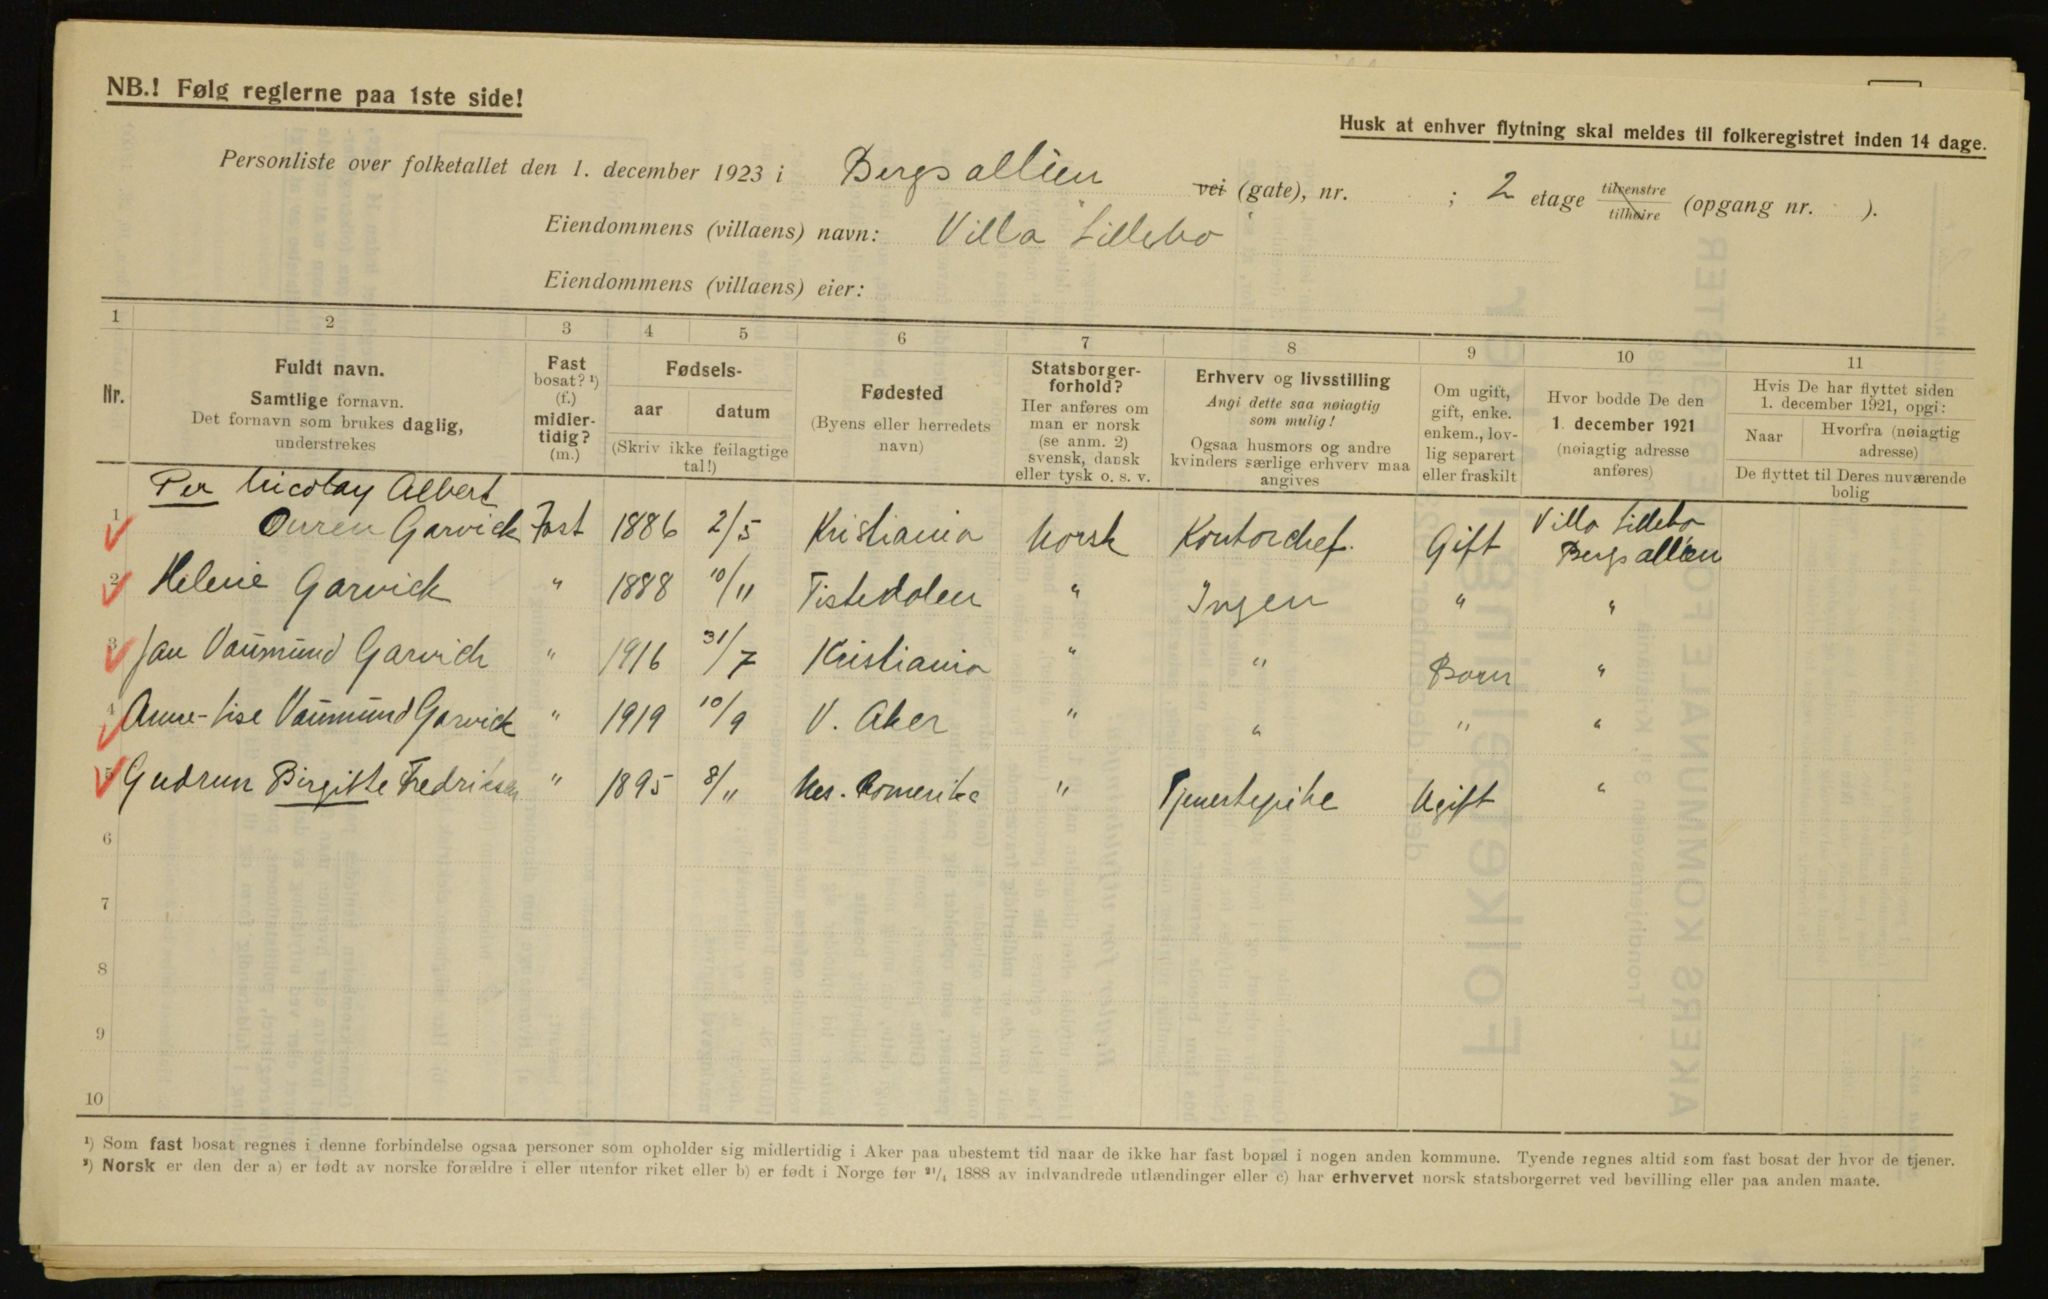 NB.! Følg reglerne paa 1ste side!
Husk at enhver flytning skal meldes til folkeregistret inden 14 dage.
Personliste over folketallet den 1. december 1923 i Bergsalléen vei (gate), nr. ; 2 etage tilvenstre tilhøire (opgang nr. ).
Eiendommens (villaens) navn: Villa Lillebo
Eiendommens (villaens) eier:
1 2 3 4 5 6 7 8 9 10 11
Nr.
Fuldt navn.
Samtlige fornavn.
Det fornavn som brukes daglig, understrekes
Fast bosat? ¹) (f.) midler-tidig? (m.)
Fødsels-
aar datum
(Skriv ikke feilagtige tal!)
Fødested
(Byens eller herredets navn)
Statsborger-forhold?
Her anføres om man er norsk (se anm. 2) svensk, dansk eller tysk o. s. v.
Erhverv og livsstilling
Angi dette saa nøiagtig som mulig!
Ogsaa husmors og andre kvinders særlige erhverv maa angives
Om ugift, gift, enke. enkem., lov-lig separert eller fraskilt
Hvor bodde De den 1. december 1921 (nøiagtig adresse anføres)
Hvis De har flyttet siden 1. december 1921, opgi:
Naar Hvorfra (nøiagtig adresse)
De flyttet til Deres nuværende bolig
Per Nicolay Albert
1 Ouren Garvick Fast 1886 2/5 Kristiania Norsk Kontorchef. Gift Villa Lillebo Bergsalléen
2 Helene Garvick " 1888 10/11 Tistedalen " Ingen " "
3 Jan Vaumund Garvick " 1916 31/7 Kristiania " " Barn "
4 Anne-Lise Vaumund Garvick " 1919 10/9 V. Aker " " " "
5 Gudrun Birgitte Fredriksen " 1895 8/11 Nes. Romerike " Tjenestepike Ugift "
6
7
8
9
10
¹) Som fast bosat regnes i denne forbindelse ogsaa personer som opholder sig midlertidig i Aker paa ubestemt tid naar de ikke har fast bopæl i nogen anden kommune. Tyende regnes altid som fast bosat der hvor de tjener.
²) Norsk er den der a) er født av norske forældre i eller utenfor riket eller b) er født i Norge før 21/4 1888 av indvandrede utlændinger eller c) har erhvervet norsk statsborgerret ved bevilling eller paa anden maate.